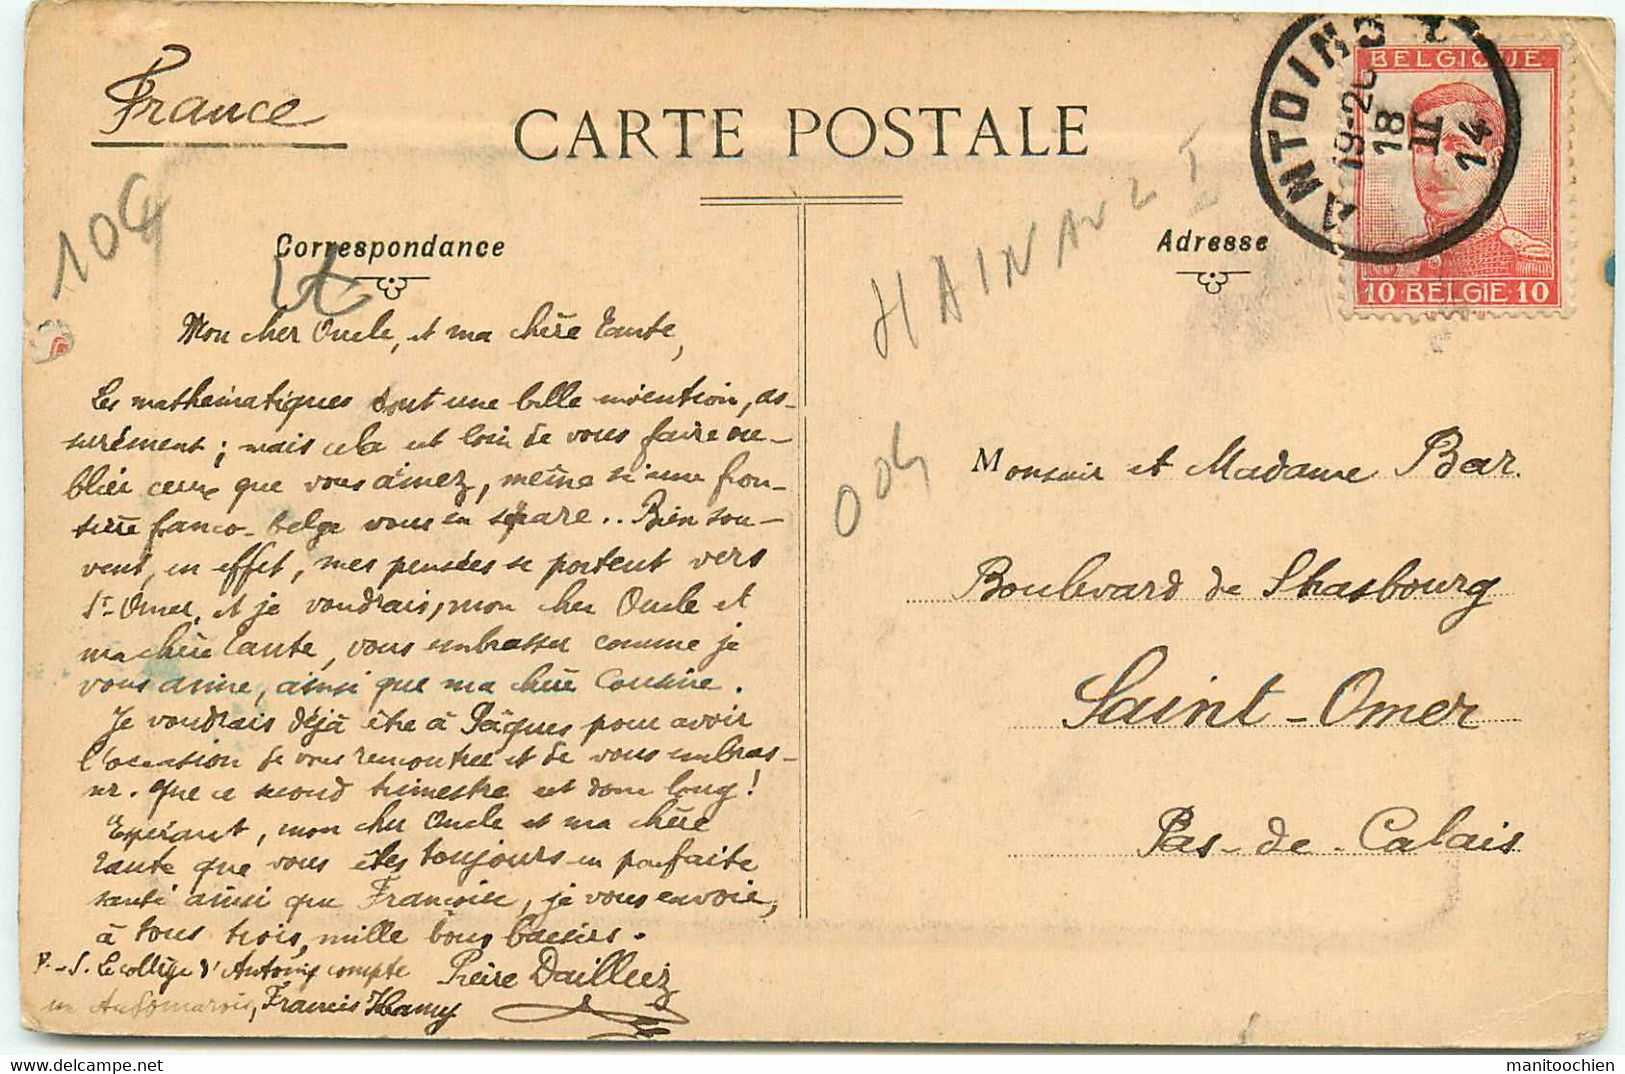 France
CARTE POSTALE
Correspondance
Adresse
ANTOING
19-20
18
II
14
BELGIQUE
10 · BELGIE · 10
HAINAUT
Mon cher Oncle, et ma chère Tante,
Les mathématiques sont une belle invention, as-
surément ; mais cela est loin de vous faire ou-
blier ceux que vous aimez, même si une fron-
tière franco-belge vous en sépare.. Bien sou-
vent, en effet, mes pensées se portent vers
St-Omer, et je voudrais, mon cher Oncle et
ma chère Tante, vous embrasser comme je
vous aime, ainsi que ma chère Cousine.
Je voudrais déjà être à Pâques pour avoir
l'occasion de vous rencontrer et de vous embras-
ser. Que ce second trimestre est donc long !
Espérant, mon cher Oncle et ma chère
Tante que vous êtes toujours en parfaite
santé ainsi que Françoise, je vous envoie,
à tous trois, mille bons baisers.
P.-S. Le collège d'Antoing compte
un Audomarois, Francis Hamy
Pierre Dailliez
Monsieur et Madame Bar.
Boulevard de Strasbourg
Saint-Omer
Pas-de-Calais
delcampe.net
manitoochien